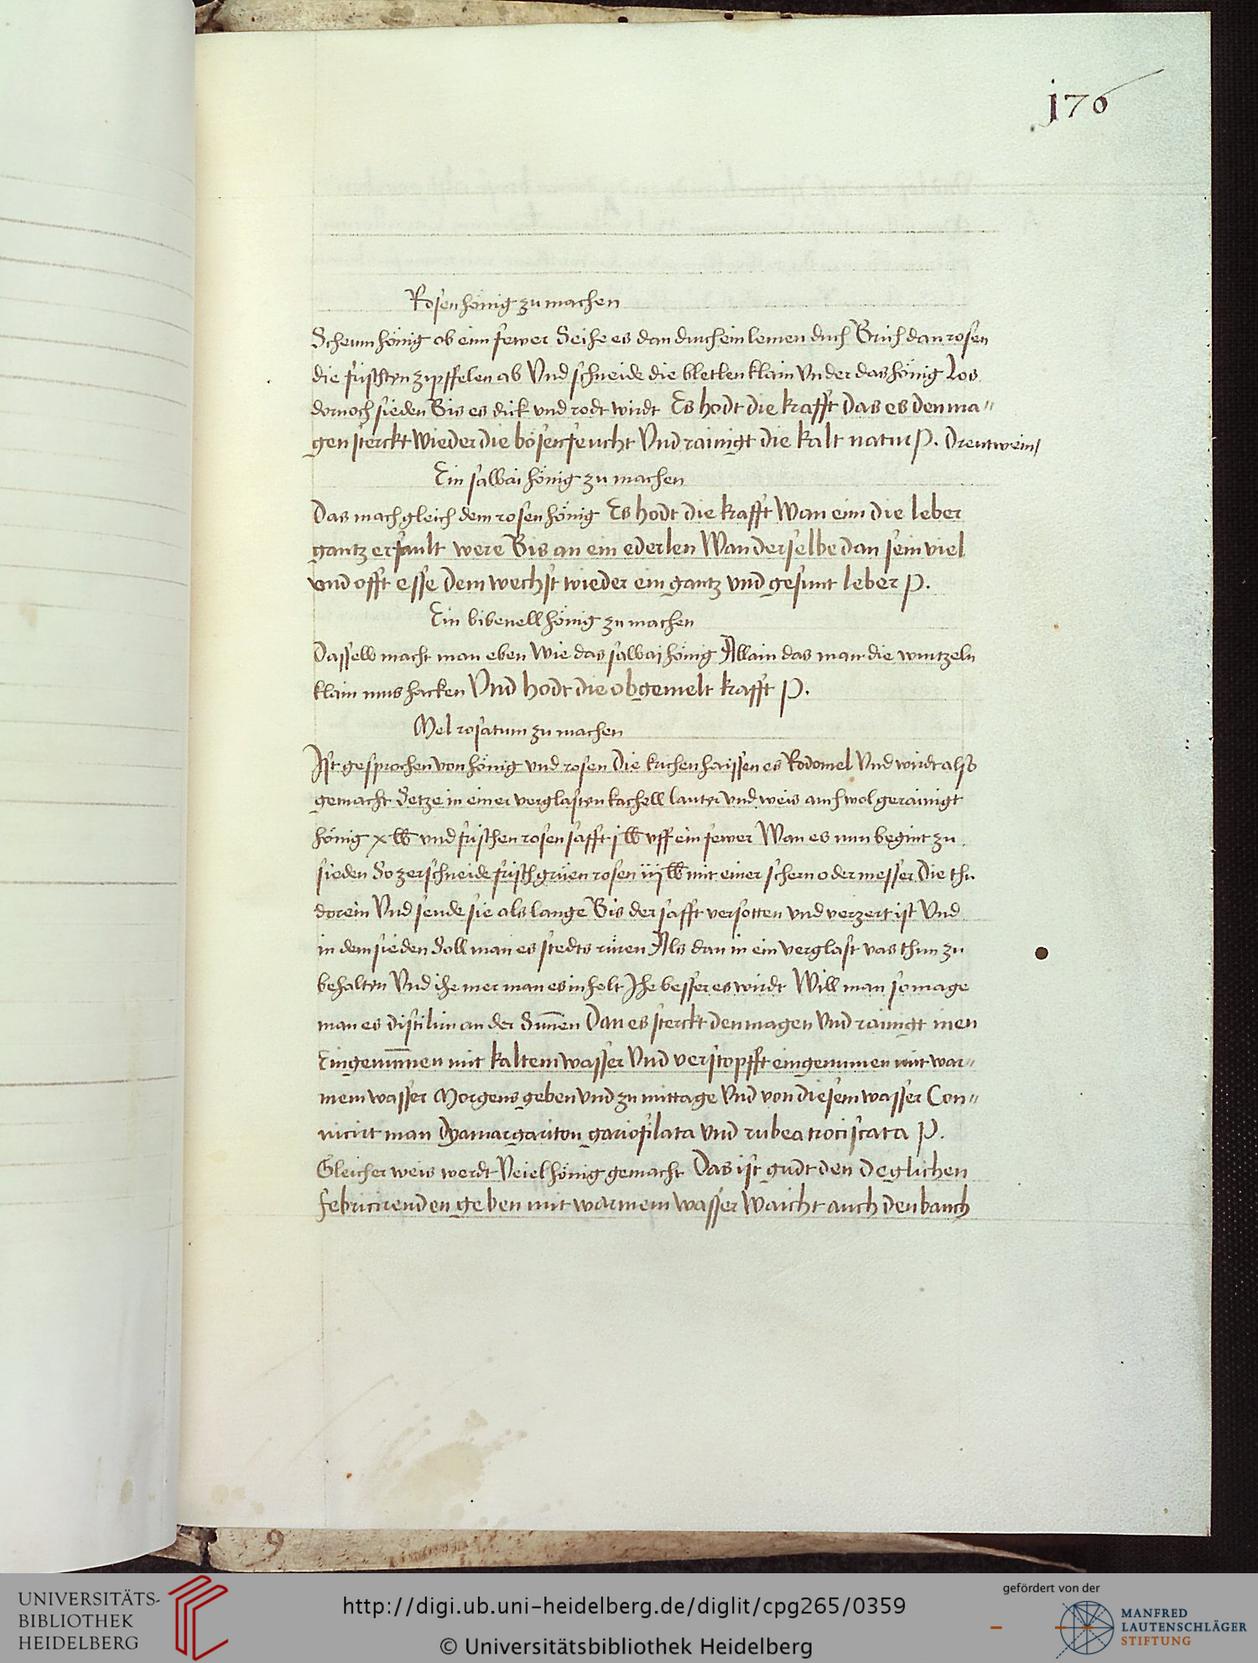 j76
Rosen hönig zu machen
Scheum hönig ob eim fewer Seihe es dan durch ein leinen duch Brich dan rosen
die frischen zipffelen ab Vnd schneide die bletlen klain Vnder das hönig Los
dornoch sieden Bis es dick vnd rodt wirdt Es hodt die krafft Das es den ma〃
gen sterckt Wieder die bösen feucht Vnd rainigt die kalt natur P. Drentwein
Ein salbai hönig zu machen
Das mach gleich dem rosen hönig Es hodt die krafft Wan eim die leber
gantz erfault were Bis an ein ederlen Wan derselbe dan sein viel
vnd offt esse Dem wechst wieder ein gantz vnd gesunt leber P.
Ein bibenell hönig zu machen
Dasselb macht man eben Wie das salbaj hönig Allain das man die wurtzeln
klain mus hacken Vnd hodt die obgemelt krafft P.
Mel rosatum zu machen
Ist gesprochen von hönig vnd rosen Die krichen haissen es Rodomel Vnd wirdt also
gemacht Setze in einer verglasten kachell lauter vnd weis auch wol gerainigt
hönig x lb vnd frischen rosen safft j lb vff ein fewer Wan es nun begint zu
sieden So zerschneide frisch grüen rosen iiij lb mit einer schern oder messer Die thu
dorein Vnd seude sie als lange Bis der safft versotten vnd verzert ist Vnd
in dem sieden Soll man es stedts rüren Als dan in ein verglast vas thun zu
behalten Vnd ihe mer man es inhelt Ihe besser es wirdt Will man so mage
man es distilirn an der Sunnen Dan es sterckt den magen Vnd rainigt inen
Eingenummen mit kaltem wasser Vnd verstopfft eingenumen mit war〃
mem wasser Morgens geben Vnd zu mittage Vnd von diesem wasser Con〃
nicirt man Dyamargariton gariofilata Vnd rubea trociscata P.
Gleicher weis werdt Veiel hönig gemacht Das ist gudt den Deglichen
febricirenden geben mit warmem wasser Waicht auch den bauch
9
UNIVERSITÄTS-
BIBLIOTHEK
HEIDELBERG
http://digi.ub.uni-heidelberg.de/diglit/cpg265/0359
© Universitätsbibliothek Heidelberg
gefördert von der
MANFRED
LAUTENSCHLÄGER
STIFTUNG